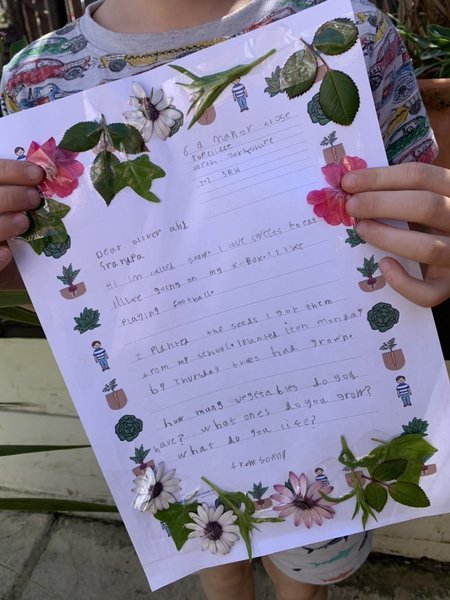 6 a Manor close
TOPCLIFFE
North Yorkshire
3RH
Dear oliver and
Grandpa
Hi Im called sonny. I love sweets to eat.
I like going on my x-Box. I like
Playing football.
I Planted the seeds I got them
from my school. I Planted it on Monday
by Thursday they had grown.
how many vegetables do you
have? what ones do you grow?
what do you like?
from sonny